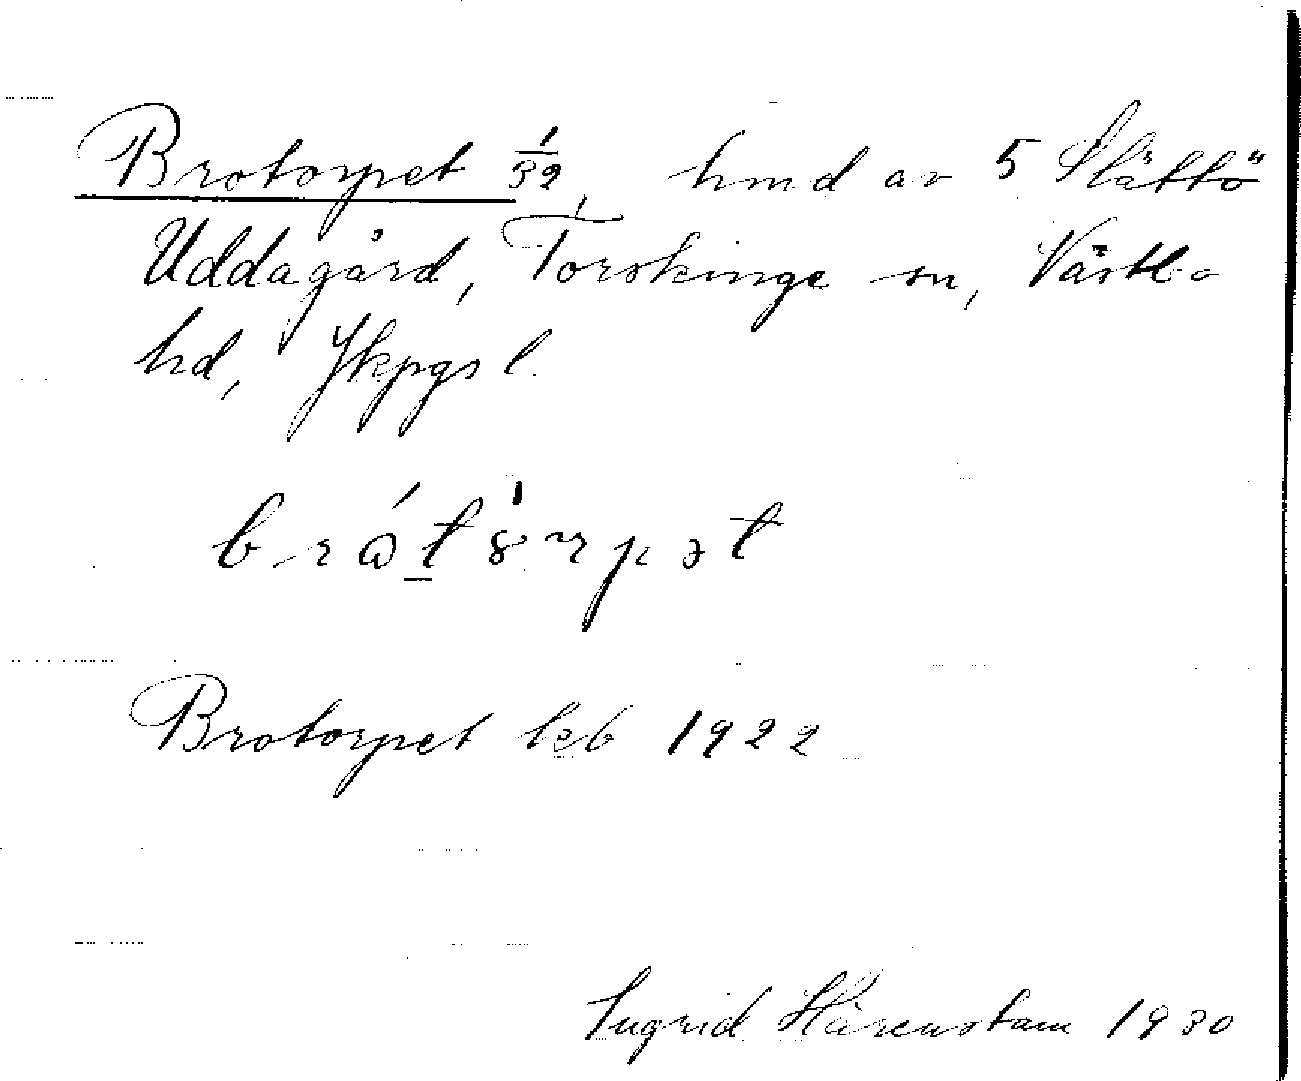 Brotorpet 1/32, hmd av 5 Slättö
Uddagård, Torskinge sn, Västbo
hd, Jkpgs l.
Brotorpet leb 1922
Ingrid Härenstam 1930